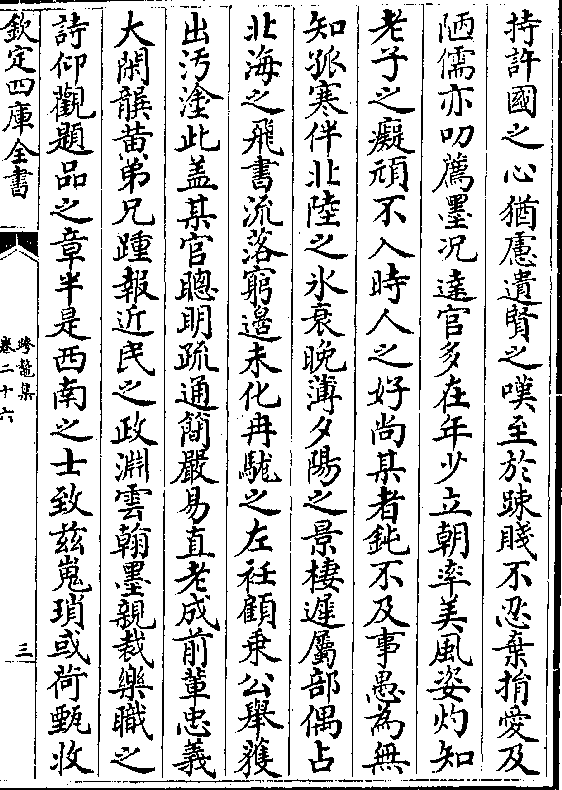 持許國之心猶慮遺賢之嘆至於踈賤不忍棄捐愛及
陋儒亦叨薦墨况達官多在年少立朝率美風姿灼知
老子之癡頑不入時人之好尚某者鈍不及事愚為無
知孤寒伴北陸之氷衰晚薄夕陽之景棲遲屬部偶占
北海之飛書流落窮邉未化冉駹之左衽顧乗公舉獲
出汚塗此盖某官聰明疏通簡嚴易直老成前軰忠義
大閑龔黄弟兄踵報近民之政淵雲翰墨親裁樂職之
詩仰觀題品之章半是西南之士致兹嵬瑣或荷甄收
欽定四庫全書
跨鼇集
卷二十六
三